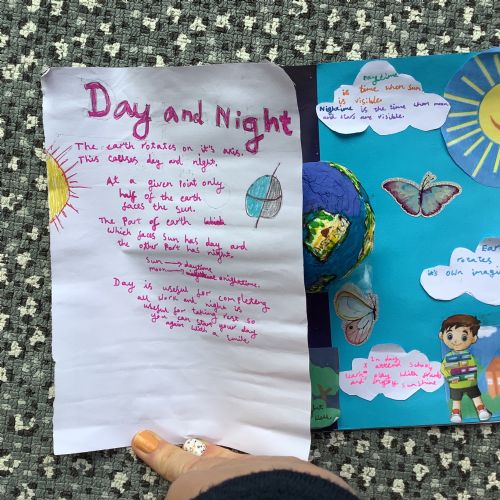 Day and Night
The earth rotates on it's axis.
This causes day and night.
At a given point only
half of the earth
faces the sun.
The Part of earth
which faces sun has day and
the other Part has night.
Sun → daytime
moon → nighttime.
Day is useful for completing
all work and night is
useful for taking rest so
you can start your day
again with a smile.
Daytime
is time when sun
is visible.
Nightime is the time when moon
and stars are visible.
Ear
rotates
it's own imagi
In day
I attend School,
learn play with friends
and enjoy sunshine